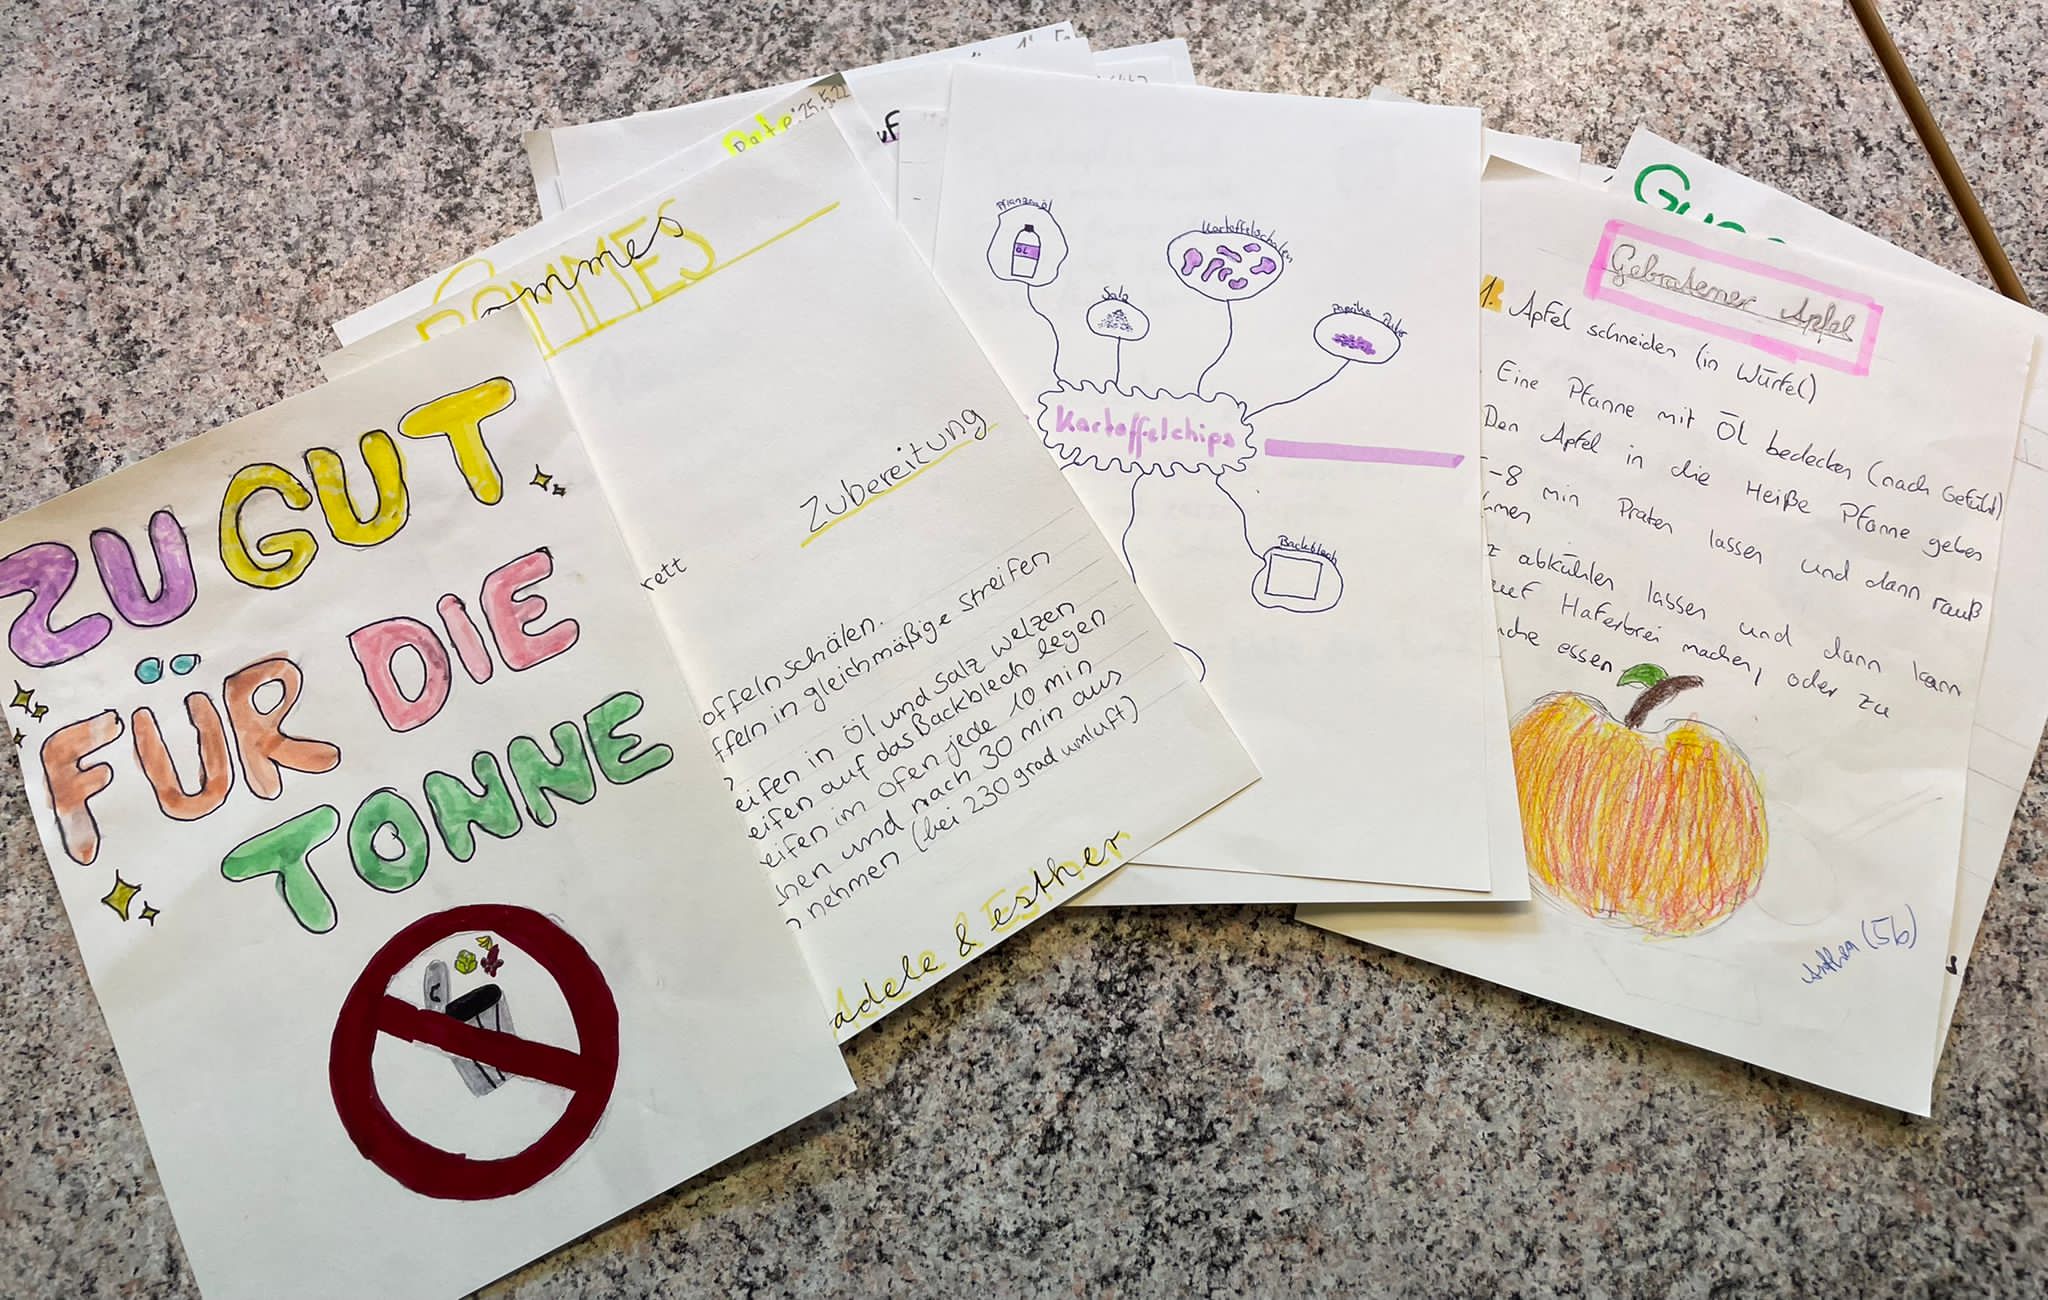 ZU GUT
FÜR DIE
TONNE
Date: 25.5.22
POMMES
Pommes
Zubereitung
rett
offeln schälen.
ffeln in gleichmäßige Streifen
eifen in Öl und Salz welzen
eifen auf das Backblech legen
eifen im Ofen jede 10 min
hen und nach 30 min aus
nehmen (bei 230 grad umluft)
Adele & Esther
Pflanzenöl
ÖL
Salz
Kartoffelschalen
Paprika
Kartoffelchips
Backblech
Gebratener Apfel
1. Apfel schneiden (in Würfel)
Eine Pfanne mit Öl bedecken (nach Gefühl)
Den Apfel in die Heiße Pfanne geben
-8 min Praten lassen und dann rauß
hmen
z abkühlen lassen und dann kann
auf Haferbrei machen, oder zu
che essen
(5b)